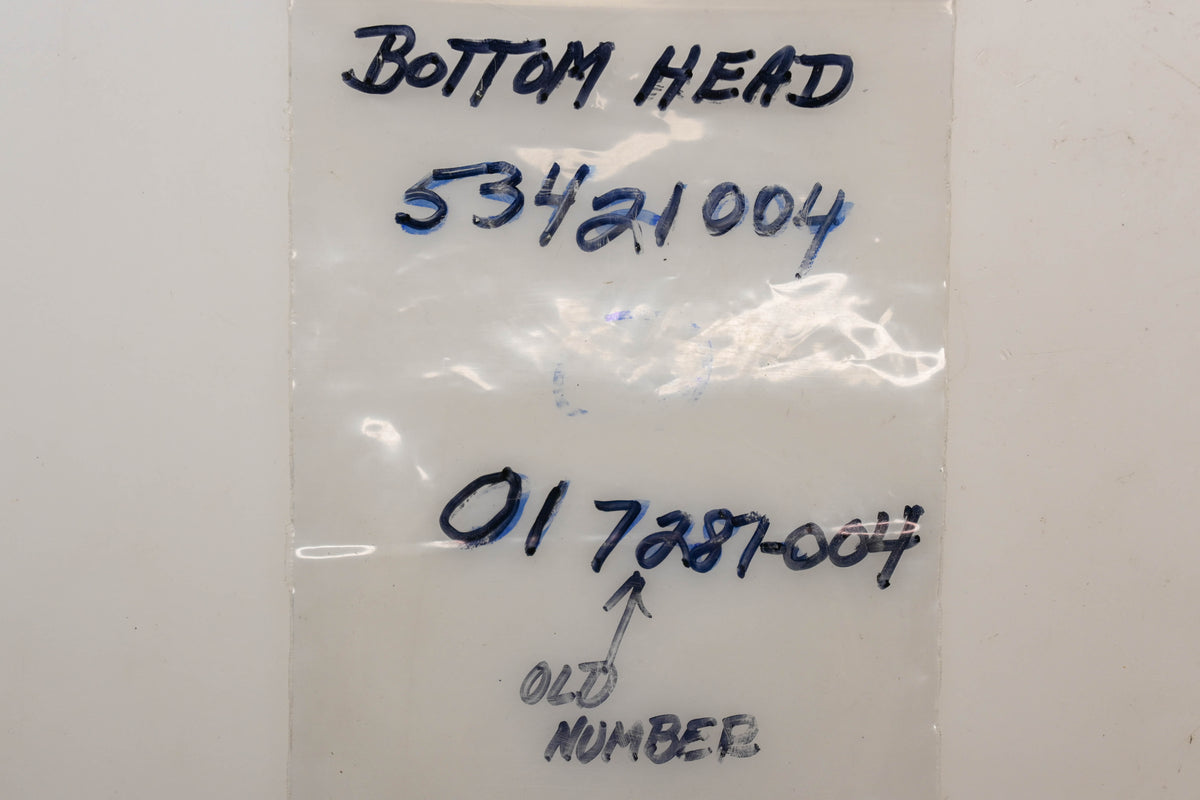 BOTTOM HEAD
53421004
017281-004
OLD
NUMBER